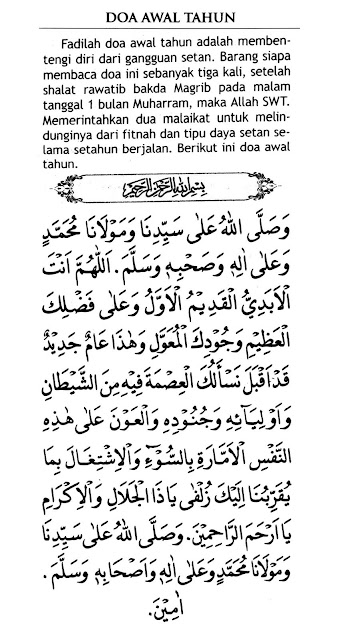 DOA AWAL TAHUN
Fadilah doa awal tahun adalah memben-
tengi diri dari gangguan setan. Barang siapa
membaca doa ini sebanyak tiga kali, setelah
shalat rawatib bakda Magrib pada malam
tanggal 1 bulan Muharram, maka Allah SWT.
Memerintahkan dua malaikat untuk melin-
dunginya dari fitnah dan tipu daya setan se-
lama setahun berjalan. Berikut ini doa awal
tahun.
بِسْمِ اللهِ الرَّحْمٰنِ الرَّحِيْمِ
وَصَلَّى اللهُ عَلٰى سَيِّدِنَا وَمَوْلَانَا مُحَمَّدٍ
وَعَلٰى اٰلِهٖ وَصَحْبِهٖ وَسَلَّمَ. اَللّٰهُمَّ اَنْتَ
الْاَبَدِيُّ الْقَدِيْمُ الْاَوَّلُ وَعَلٰى فَضْلِكَ
الْعَظِيْمِ وَجُوْدِكَ الْمُعَوَّلُ وَهٰذَا عَامٌ جَدِيْدٌ
قَدْ اَقْبَلَ نَسْأَلُكَ الْعِصْمَةَ فِيْهِ مِنَ الشَّيْطَانِ
وَاَوْلِيَائِهٖ وَجُنُوْدِهٖ وَالْعَوْنَ عَلٰى هٰذِهِ
النَّفْسِ الْاَمَّارَةِ بِالسُّوْۤءِ وَالْاِشْتِغَالَ بِمَا
يُقَرِّبُنَا اِلَيْكَ زُلْفٰى يَاذَا الْجَلَالِ وَالْاِكْرَامِ
يَا اَرْحَمَ الرَّاحِمِيْنَ. وَصَلَّى اللهُ عَلٰى سَيِّدِنَا
وَمَوْلَانَا مُحَمَّدٍ وَعَلٰى اٰلِهٖ وَاَصْحَابِهٖ وَسَلَّمَ.
اٰمِيْنَ.